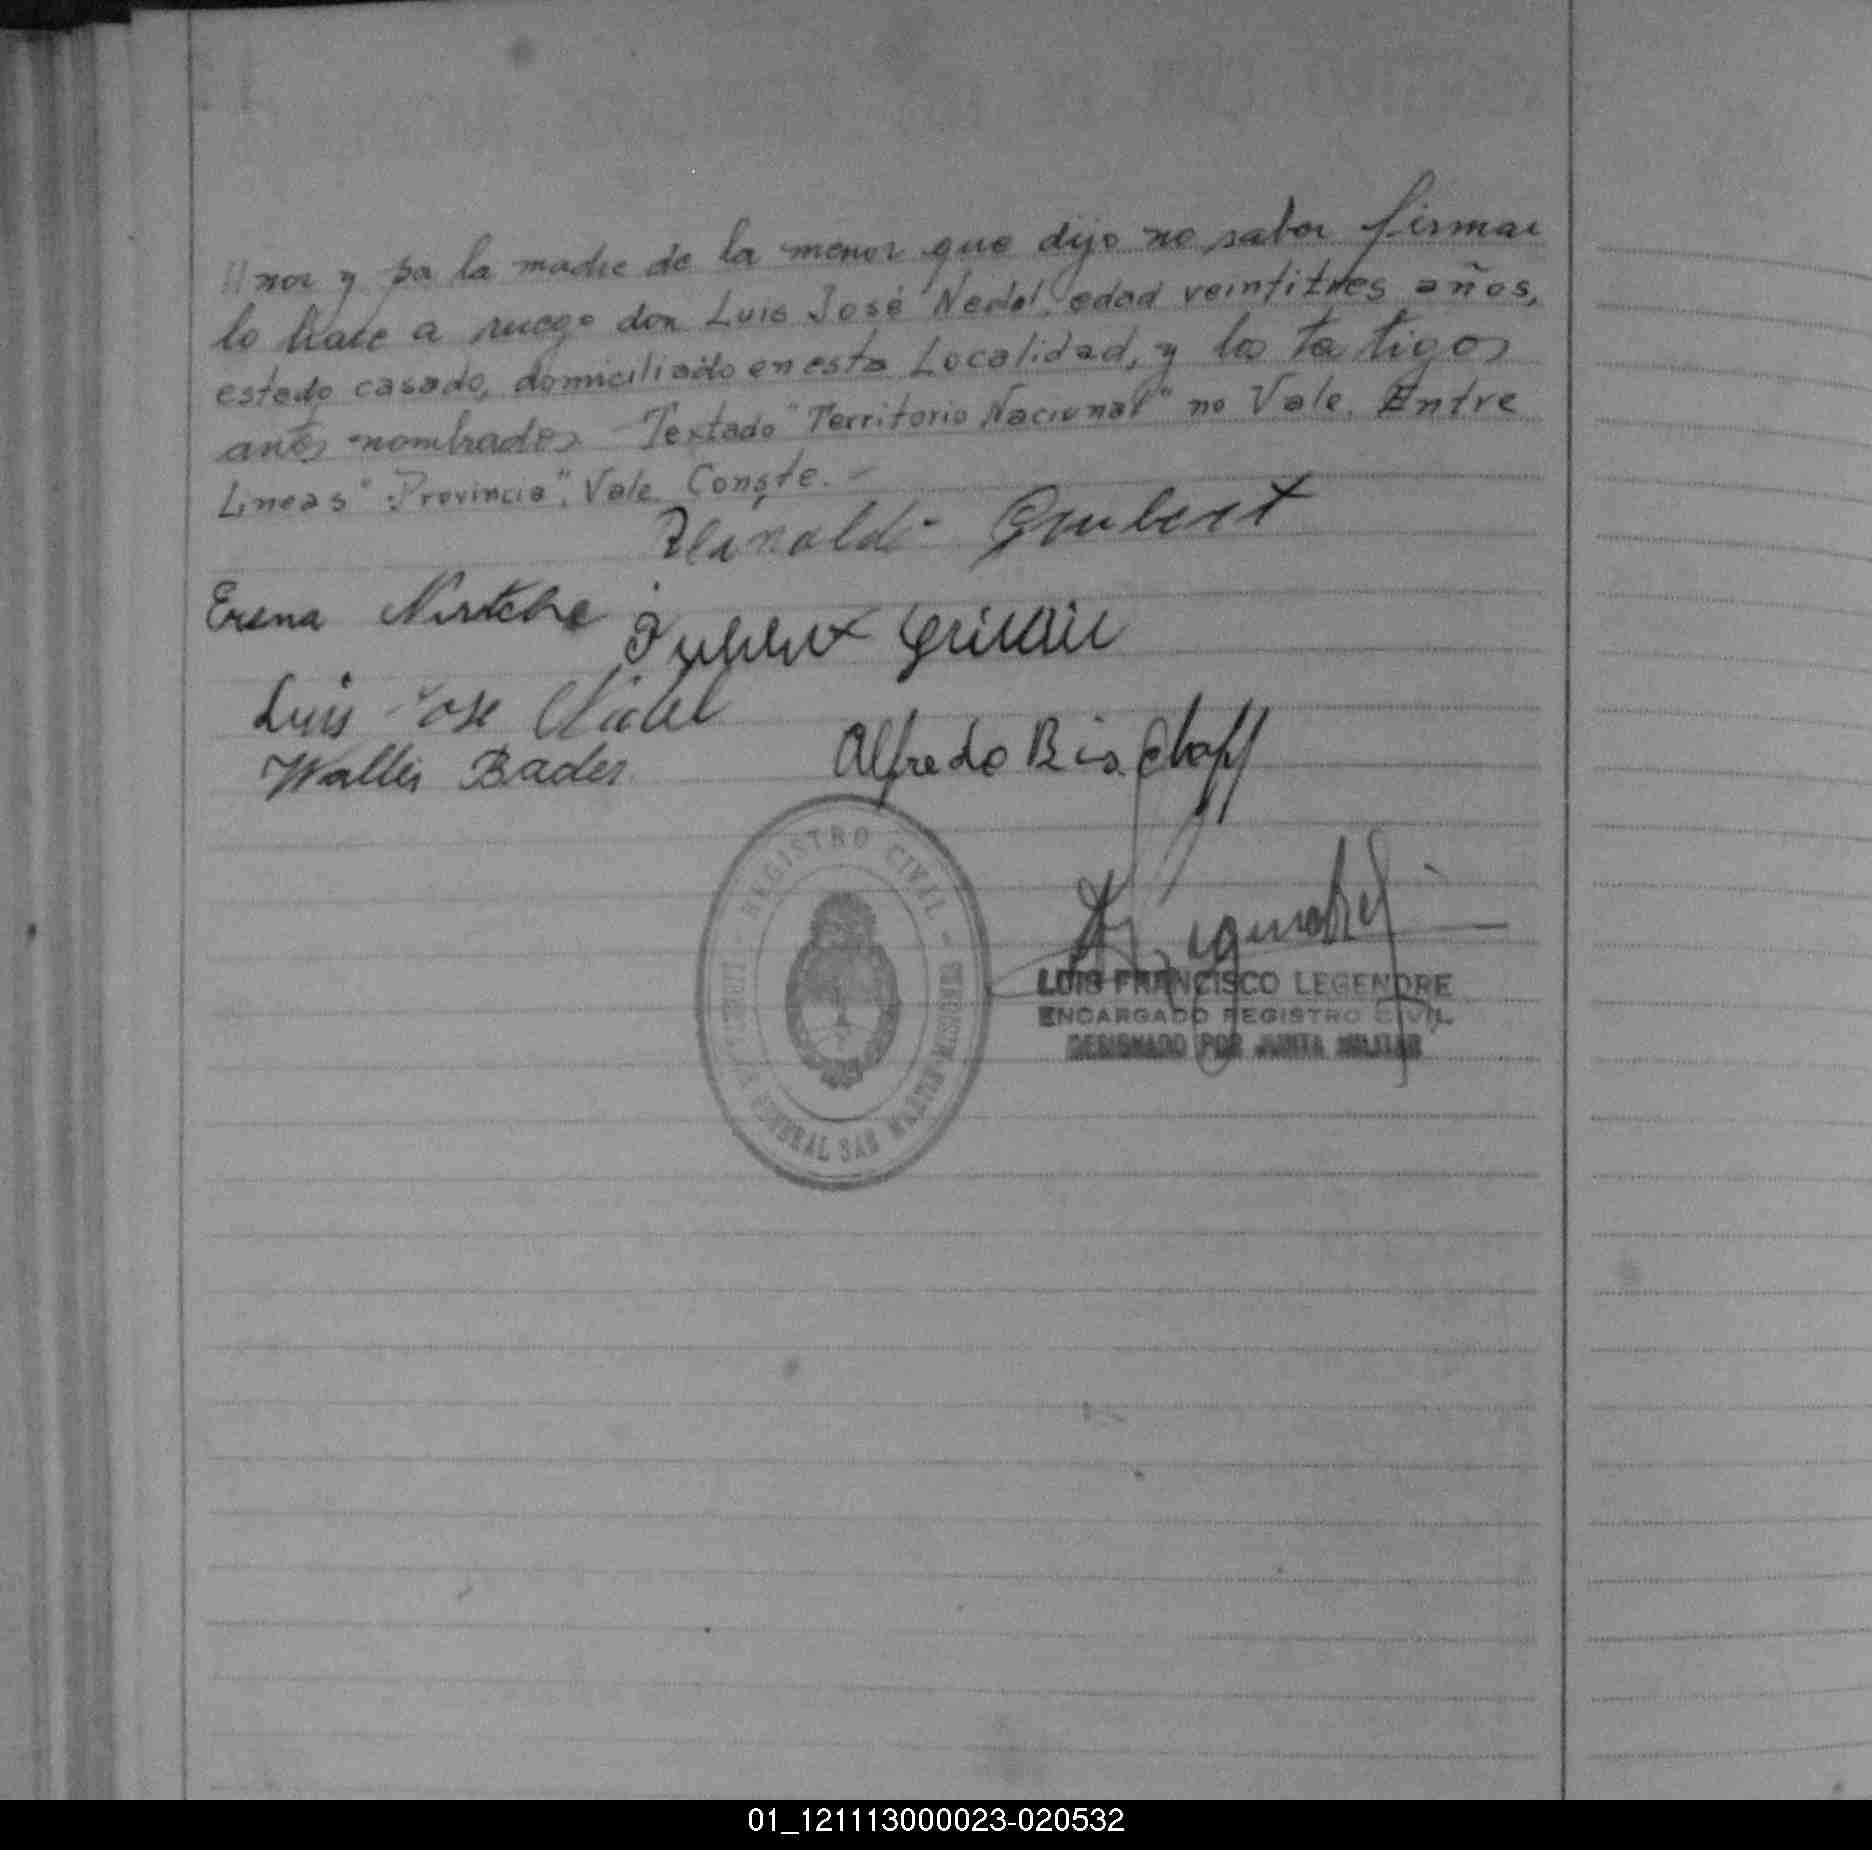 nor y por la madre de la menor que dijo no saber firmar
lo hace a ruego don Luis José Nedel, edad veintitres años,
estado casado, domiciliado en esta Localidad, y los testigos
antes nombrados. Textado "Territorio Nacional" no Vale. Entre
Lineas "Provincia", Vale. Conste. -
Reinaldo Grubert
Erena
Luis Jose Nedel
Wallis Bader
Alfredo Bischoff
REGISTRO CIVIL
GENERAL SAN MARTIN - MISIONES
LUIS FRANCISCO LEGENDRE
ENCARGADO REGISTRO CIVIL
DESIGNADO POR JUNTA MILITAR
01_121113000023-020532